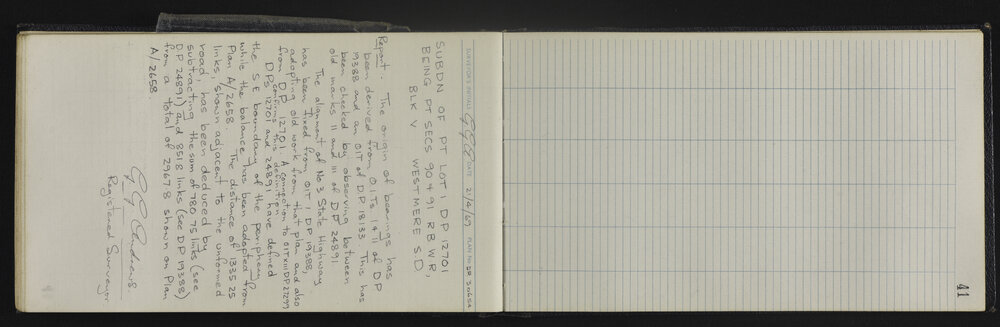 SURVEYOR'S INITIALS DATE 21/2/69 PLAN NO DP 30654
SUBDN OF PT LOT 1 DP 12701
BEING PT SECS 90 & 91 RB WR,
BLK V WESTMERE S D
Report. The origin of bearings has
been derived from OITs I & II of DP
19388 and an OIT of DP 18133. This has
been checked by observing between
old marks II and III of DP 24891
The alignment of No 3 State Highway
has been fixed from OIT I DP 19388,
adopting old work from that plan and also
from DP 12701. A connection to OIT XIII DP 27299
confirms this definition
DPs 12701 and 24891 have defined
the S.E boundary of the periphery
while the balance has been adopted from
Plan A/2658. The distance of 1335.25
links, shown adjacent to the unformed
road, has been deduced by
subtracting the sum of 780.75 links (see
DP 24891) and 851.8 links (see DP 19388)
from a total of 2967.8 shown on Plan
A/2658.
Registered Surveyor
41